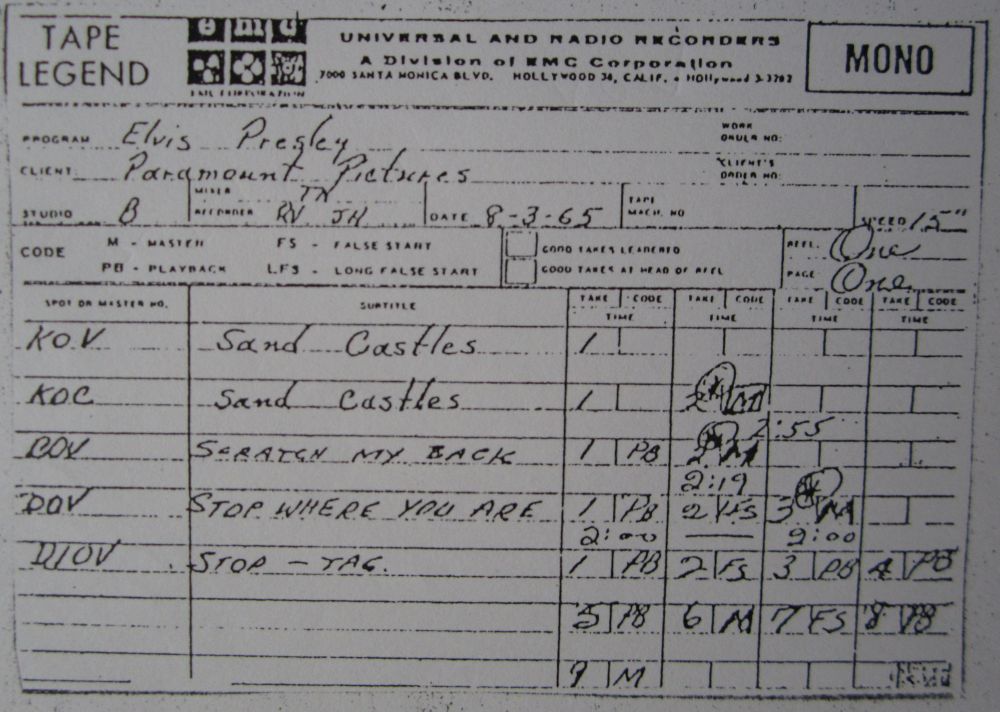 TAPE LEGEND
emc
EMC CORPORATION
UNIVERSAL AND RADIO RECORDERS
A Division of EMC Corporation
7000 SANTA MONICA BLVD. HOLLYWOOD 38, CALIF. • HOllywood 3-3282
MONO
PROGRAM Elvis Presley WORK ORDER NO:
CLIENT: Paramount Pictures CLIENT'S ORDER NO:
STUDIO B MIXER TN RECORDER RV JH DATE 8-3-65 TAPE MACH. NO SPEED 15"
CODE M - MASTER FS - FALSE START GOOD TAKES LEADERED REEL. One
PB - PLAYBACK LFS - LONG FALSE START GOOD TAKES AT HEAD OF REEL PAGE One
SPOT OR MASTER NO. SUBTITLE TAKE CODE TAKE CODE TAKE CODE TAKE CODE
TIME TIME TIME TIME
KOV Sand Castles 1
KOC Sand Castles 1 2
2:55
BOV SCRATCH MY BACK 1 PB 2 M
2:19
DOV STOP WHERE YOU ARE 1 PB 2 FS 3 M
2:00 — 2:00
D1OV STOP - TAG. 1 PB 2 FS 3 PB 4 PB
5 PB 6 M 7 FS 8 PB
9 M